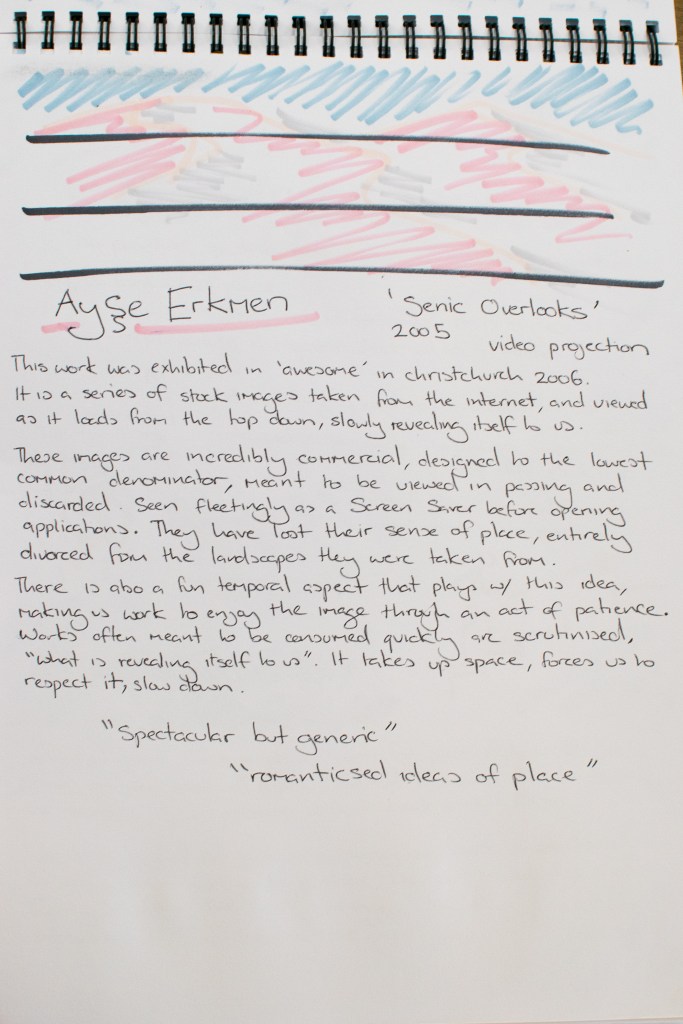 Ayşe Erkmen
'Senic Overlooks'
2005
video projection
This work was exhibited in 'awesome' in christchurch 2006.
It is a series of stock images taken from the internet, and viewed
as it loads from the top down, slowly revealing itself to us.
These images are incredibly commercial, designed to the lowest
common denominator, meant to be viewed in passing and
discarded. Seen fleetingly as a Screen Saver before opening
applications. They have lost their sense of place, entirely
divorced from the landscapes they were taken from.
There is also a fun temporal aspect that plays w/ this idea,
making us work to enjoy the image through an act of patience.
Works often meant to be consumed quickly are scrutinised,
"what is revealing itself to us". It takes up space, forces us to
respect it, slow down.
"Spectacular but generic"
"romanticsed ideas of place"